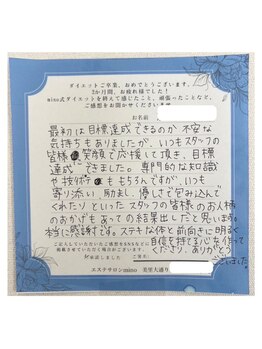 ダイエットご卒業、おめでとうございます。
2か月間、お疲れ様でした！
mino式ダイエットを終えて感じたこと、頑張ったことなど、
ご感想をお聞かせくださいませ
お名前
最初は目標達成できるのか不安な
気持ちもありましたが、いつもスタッフの
皆様 笑顔で応援して頂き、目標
達成 できました。専門的な知識
や技術 もちろんですが、いつも
寄り添い、励まし、優しさで包み込んで
くれたりといったスタッフの皆様のお人柄
のおかげもあっての結果出したと思います。
本当に感謝です。ステキな体と前向きに明るく
自信を持てる心を作って
くださり、ありがとう
ございました！
ご記入していただいたご感想をSNSなどに
掲載させていただく場合がございます。
承諾しました
エステサロンmino 美里大通り